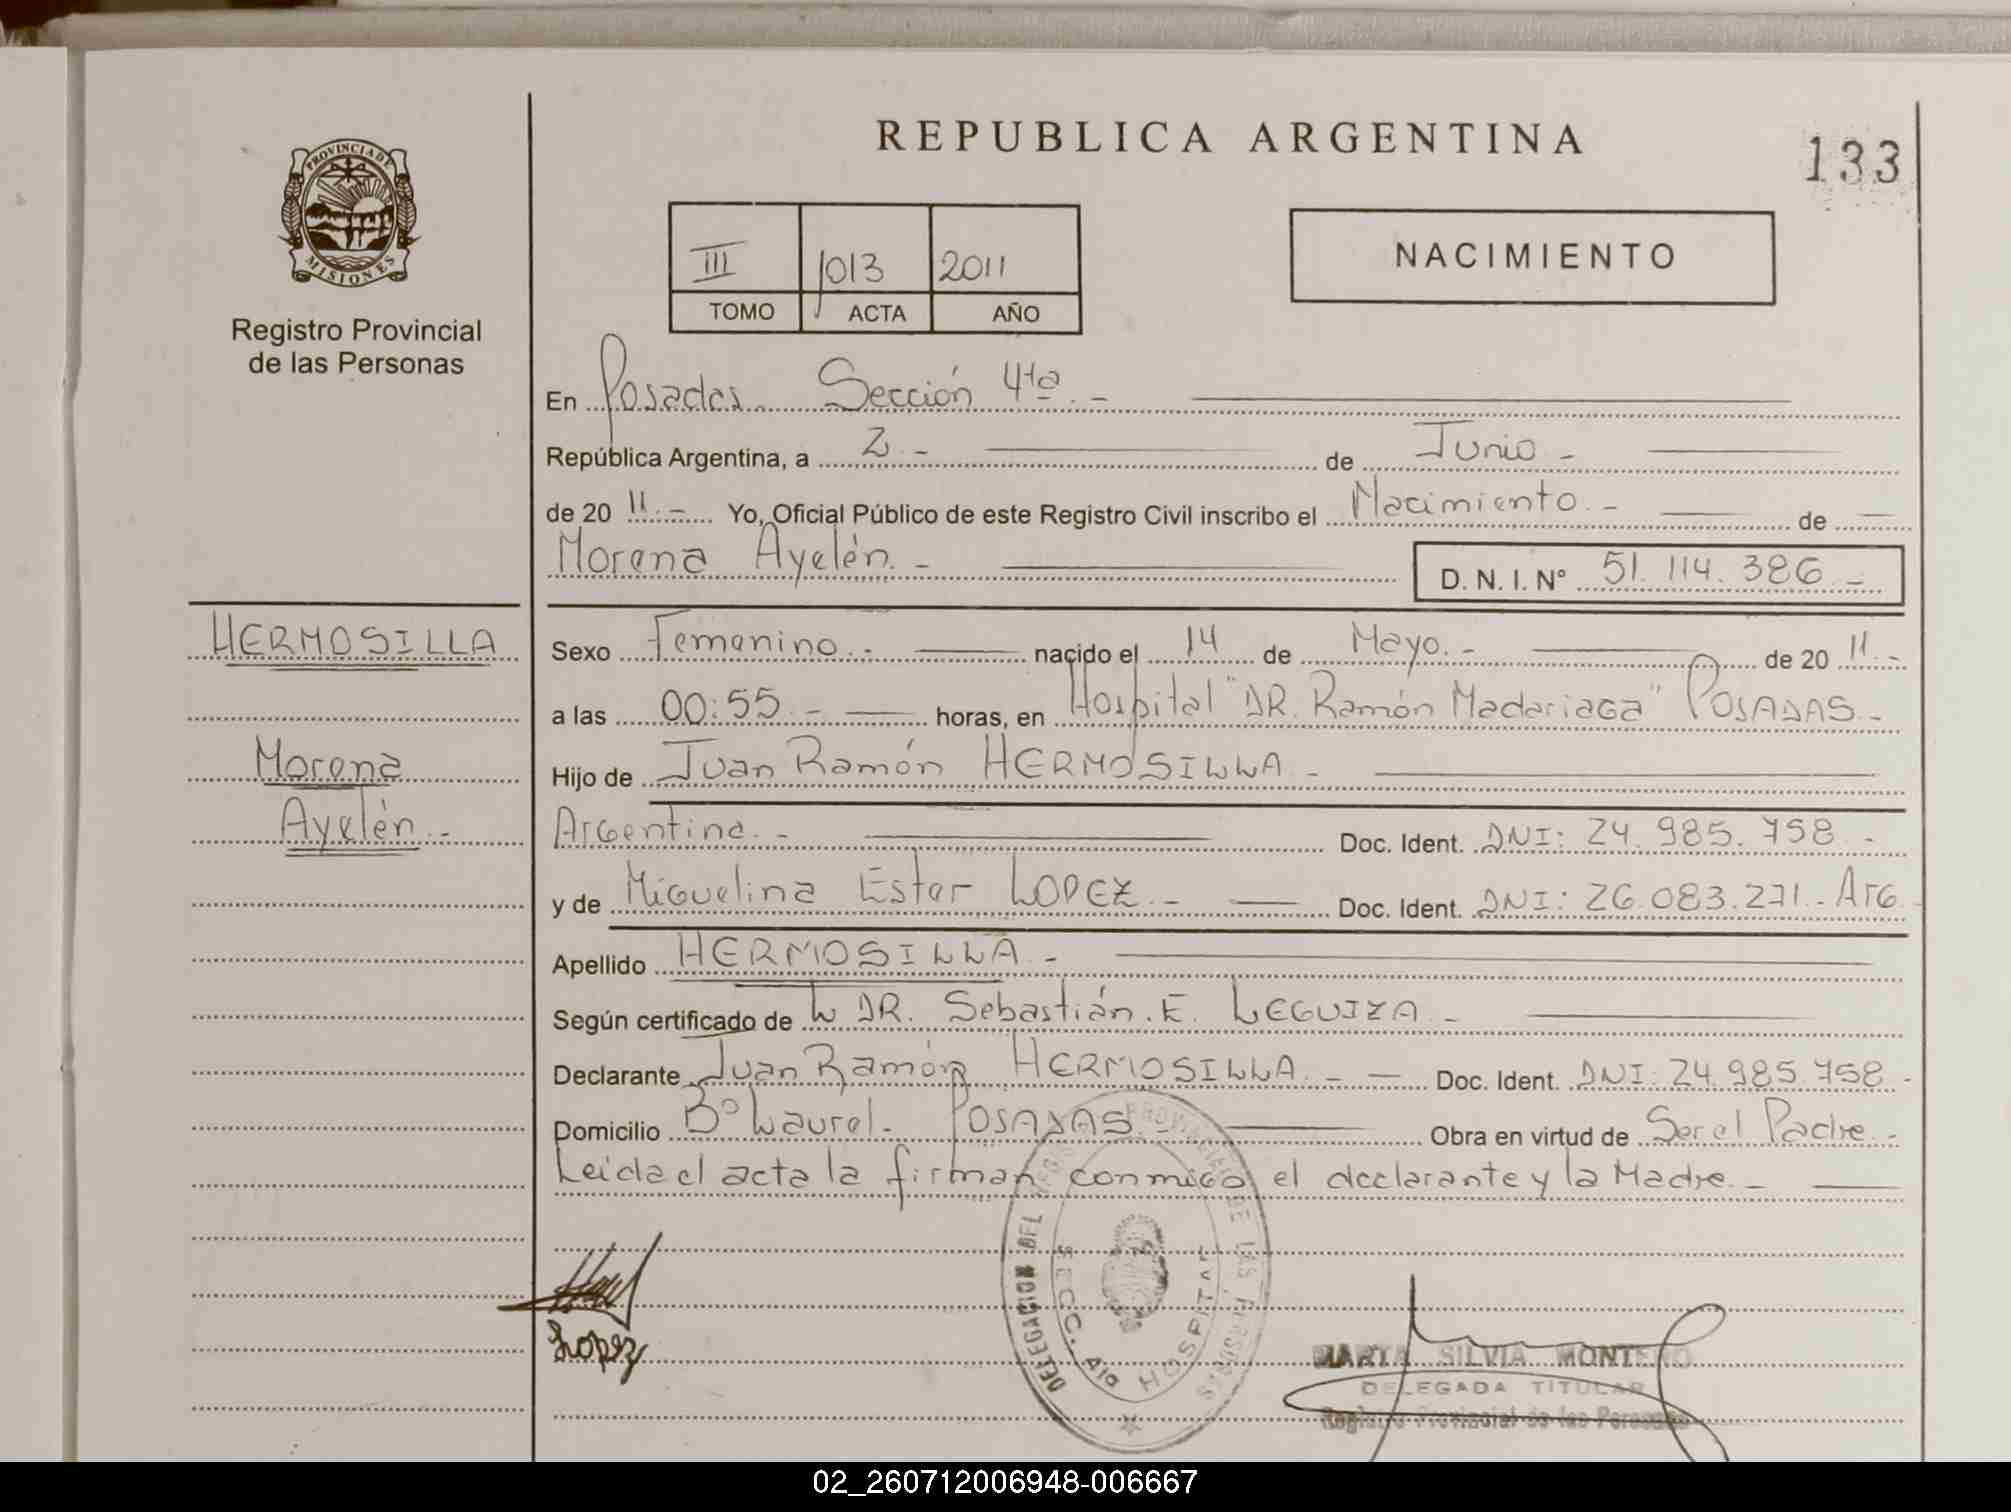 REPUBLICA ARGENTINA
133
PROVINCIA DE
MISIONES
Registro Provincial
de las Personas
III 1013 2011
TOMO ACTA AÑO
NACIMIENTO
En Posadas. Sección 4ta. -
República Argentina, a 2. - de Junio -
de 20 11. - Yo, Oficial Público de este Registro Civil inscribo el Nacimiento. - de
Morena Ayelén. - D. N. I. Nº 51. 114. 386. -
HERMOSILLA
Morena
Ayelén. -
Sexo Femenino. - nacido el 14 de Mayo. - de 20 11. -
a las 00:55. - horas, en Hospital "DR. Ramón Madariaga" POSADAS. -
Hijo de Juan Ramón HERMOSILLA. -
Argentina. - Doc. Ident. DNI: 24. 985. 758. -
y de Miguelina Ester LOPEZ. - Doc. Ident. DNI: 26.083.271. - Arg.
Apellido HERMOSILLA. -
Según certificado de L DR. Sebastián. E. LEGUIZA. -
Declarante Juan Ramón HERMOSILLA. - Doc. Ident. DNI: 24.985.758 -
Domicilio Bº Laurel. POSADAS. Obra en virtud de Ser el Padre. -
Leida el acta la firman conmigo el declarante y la Madre. -
Lopez
DELEGACION DEL REGISTRO PROVINCIAL DE LAS PERSONAS
SECC. 4ta HOSPITAL
MARTA SILVIA MONTERO
DELEGADA TITULAR
Registro Provincial de las Personas
02_260712006948-006667